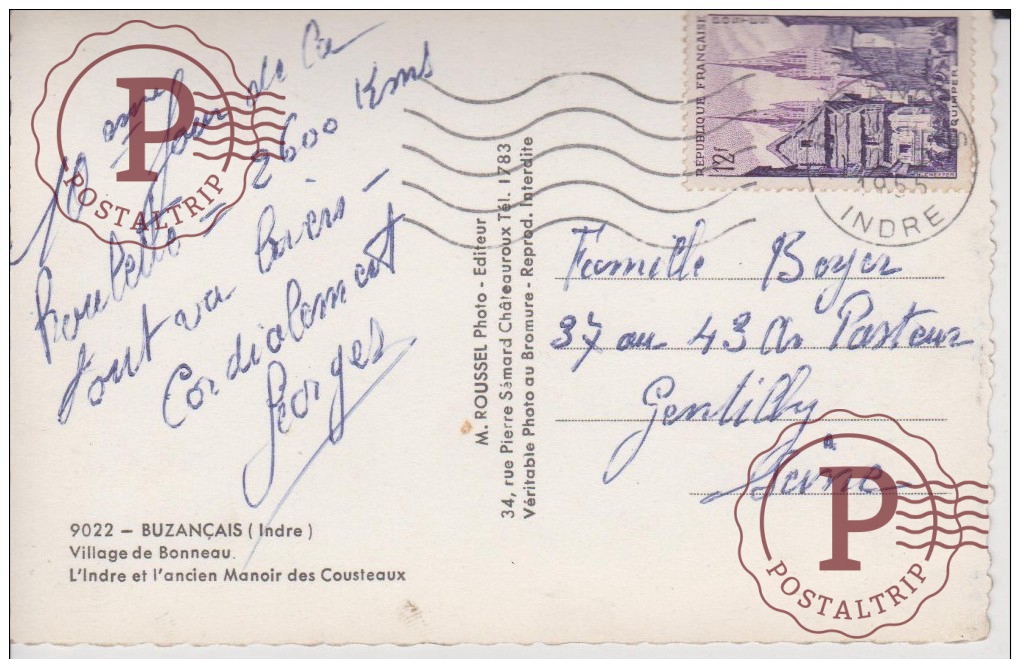 Jour de la
roulette - 2600 Kms
tout va bien -
Cordialement
Georges
9022 – BUZANÇAIS (Indre)
Village de Bonneau.
L'Indre et l'ancien Manoir des Cousteaux
M. ROUSSEL Photo - Editeur
34, rue Pierre Sémard Châteauroux Tél. 1783
Véritable Photo au Bromure - Reprod. Interdite
RÉPUBLIQUE FRANÇAISE
12F
QUIMPER
1955
INDRE
Famille Boyer
37 au 43 Av Pasteur
Gentilly
Seine
P
POSTALTRIP
P
POSTALTRIP